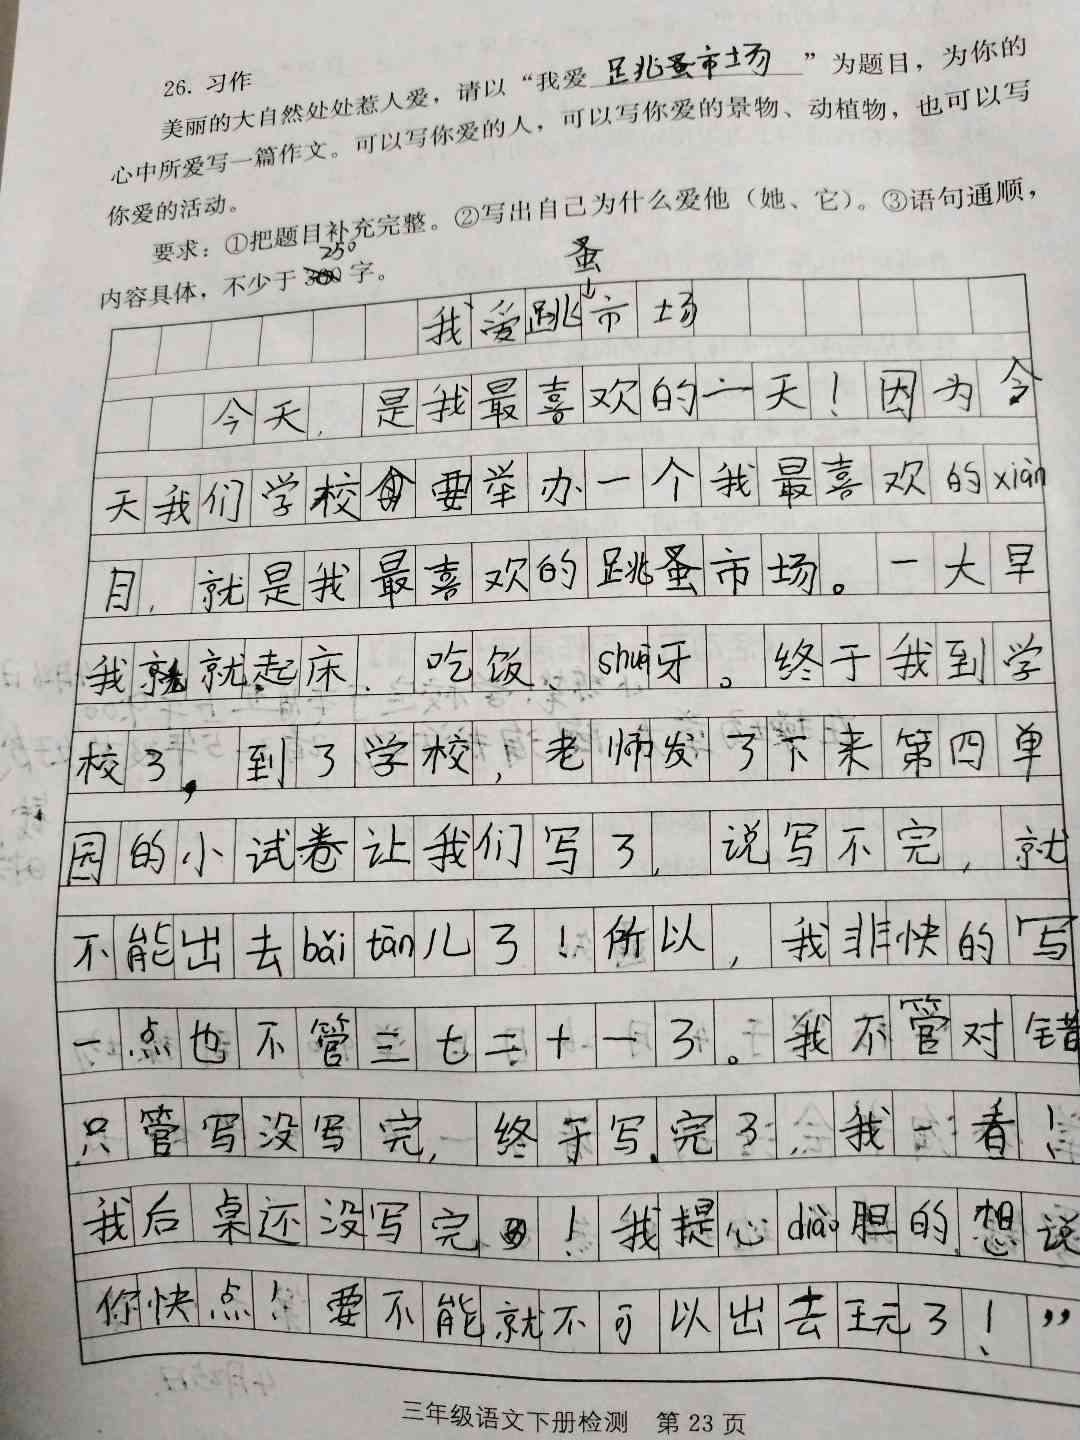 26. 习作
美丽的大自然处处惹人爱，请以“我爱 跳蚤市场 ”为题目，为你的
心中所爱写一篇作文。可以写你爱的人，可以写你爱的景物、动植物，也可以写
你爱的活动。
要求：①把题目补充完整。②写出自己为什么爱他（她、它）。③语句通顺，
250
内容具体，不少于 300 字。
蚤
我爱跳市场
今天，是我最喜欢的一天！因为今
天我们学校要举办一个我最喜欢的xiàn
目，就是我最喜欢的跳蚤市场。一大早
我就起床、吃饭、shuā牙。终于我到学
校了，到了学校，老师发了下来第四单
园的小试卷让我们写了，说写不完，就
不能出去bǎi tān儿了！所以，我非快的写
一点也不管三七二十一了。我不管对错
只管写没写完，终于写完了，我一看！
我后桌还没写完！我提心diào胆的想说
你快点！要不能就不可以出去玩了！”
三年级语文下册检测 第 23 页